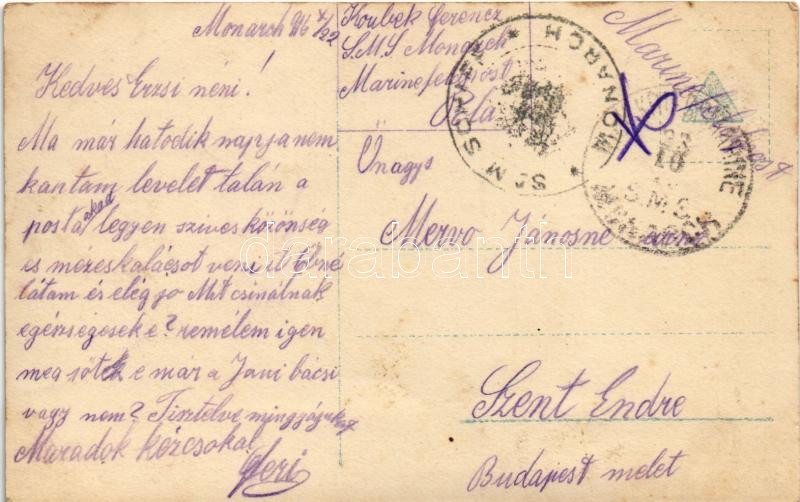 Monarch 916 X/22
Kedves Erzsi néni!
Ma már hatodik napja nem
kaptam levelet talán a
posta akad legyen szives köző nség
es mézeskalácsot veni it
látam és elég jo Mit csinálnak
egésségesek e? remélem igen
meg jött e már a Jani bácsi
vagy nem? Tisztelve
Maradok kézcsokal
Feri
Koubek Ferencz
S.M.S Monarch
Marinefeldpost
Pola
Marinefeldpost
S.M. SCHIFF * MONARCH *
S.M.S.
MONARCH
Önagys
Mervo Jánosné
Szent Endre
Budapest melet
darabanth